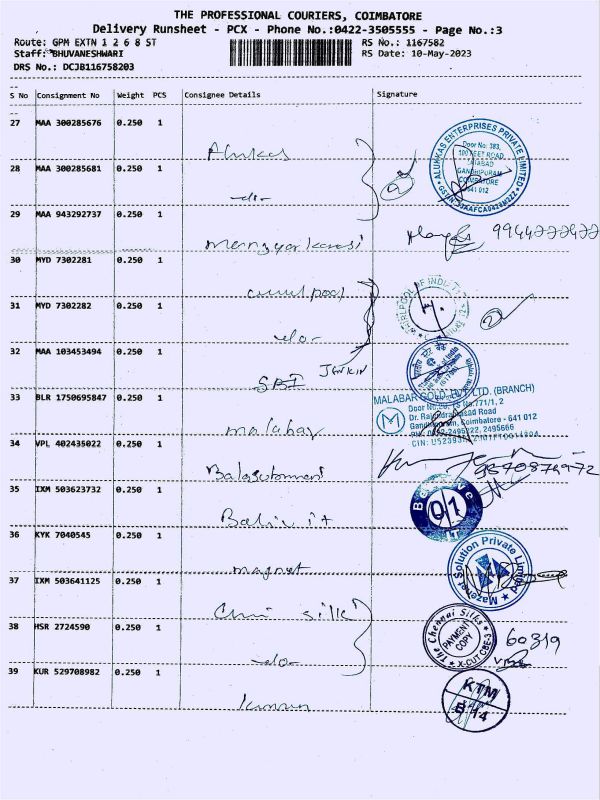 THE PROFESSIONAL COURIERS, COIMBATORE
Delivery Runsheet - PCX - Phone No.:0422-3505555 - Page No.:3
Route: GPM EXTN 1 2 6 8 ST
RS No.: 1167582
Staff: BHUVANESHWARI
RS Date: 10-May-2023
DRS No.: DCJB116758203
S No Consignment No Weight PCS Consignee Details Signature
27 MAA 300285676 0.250 1
Alukas
ALUKKAS ENTERPRISES PRIVATE LIMITED
Door No: 383,
100 FEET ROAD
GANDHIPURAM
COIMBATORE
641 012
28 MAA 300285681 0.250 1
-do-
2
29 MAA 943292737 0.250 1
mangyarkarasi
30 MYD 7302281 0.250 1
whirlpool
WHIRLPOOL OF INDIA LTD
31 MYD 7302282 0.250 1
-do-
2
32 MAA 103453494 0.250 1
SBI
33 BLR 1750695847 0.250 1
malabar
MALABAR GOLD PVT. LTD. (BRANCH)
M
Dr. Rajendra Prasad Road
Gandhipuram, Coimbatore - 641 012
34 VPL 402435022 0.250 1
35 IXM 503623732 0.250 1
01
36 KYK 7040545 0.250 1
magnet
Mazenet Solution Private Limited
37 IXM 503641125 0.250 1
silk
38 HSR 2724590 0.250 1
-do-
The Chennai Silks
PAYMENT
COPY
X-CUT CBE-3
60319
39 KUR 529708982 0.250 1
KTM
B-14